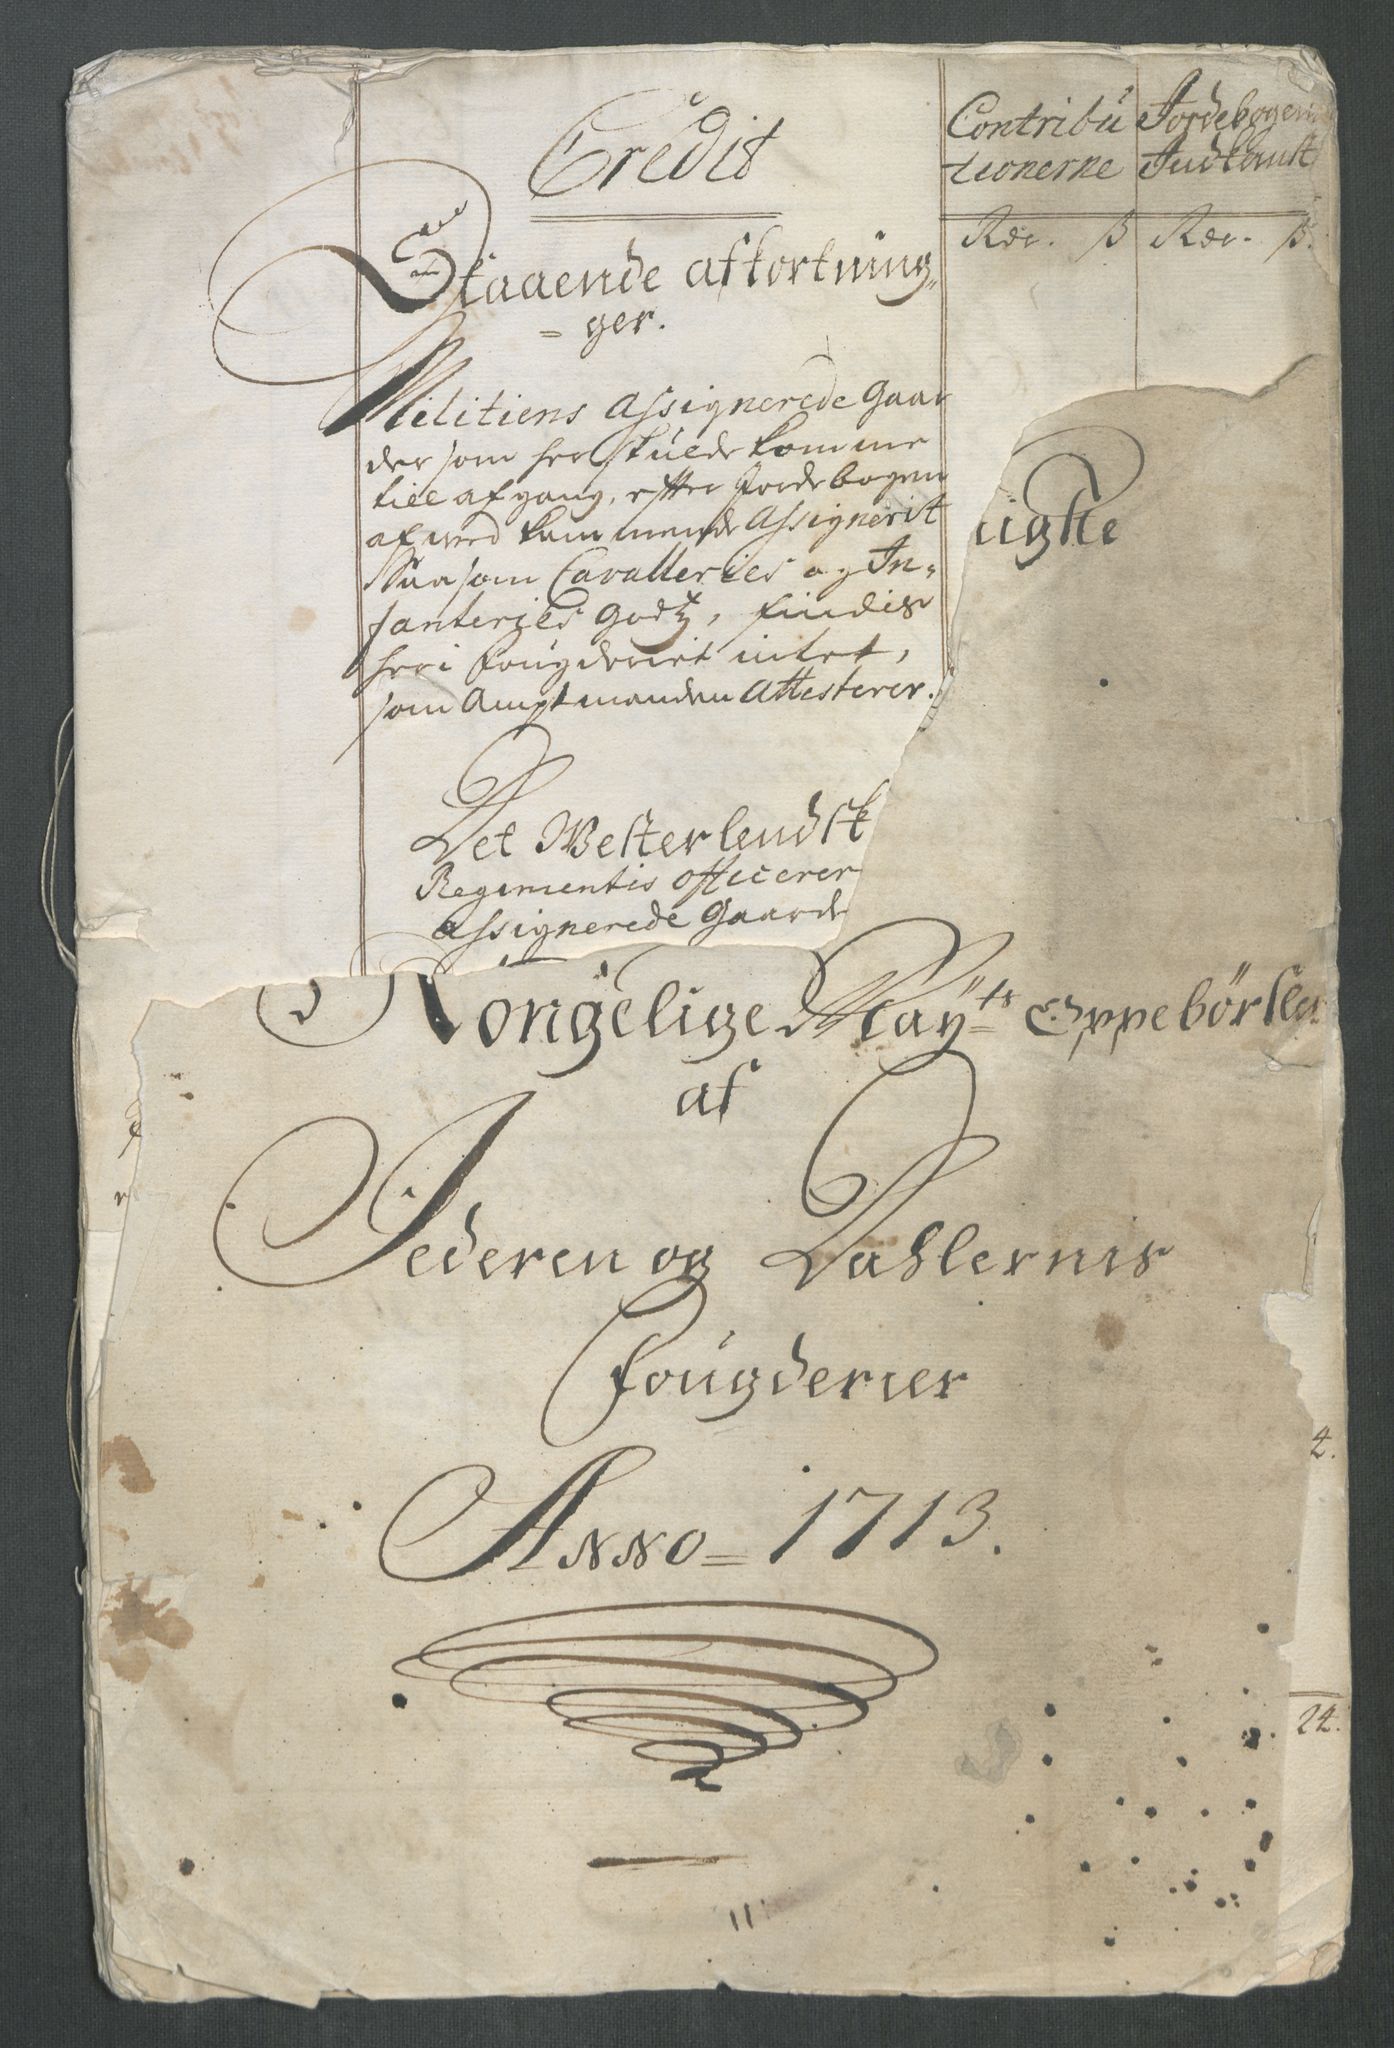 Credit
Contribu Jordebogens
tionerne Indkomst
Rdr. ß Rdr. ß.
Staaende afkortning
= ger.
Militiens Assignerede Gaar
der som her skulde komme
till afgang, efter Jordebogen
af ved kommende Assignerit
Saasom Cavalleries og In-
fanteries Godtz, findis
her i fougderiet intet,
som Amptmanden Attesterer.
Det Westerlendsk
Regimentis officerer
assignerede Gaarde
Kongelige Mayts Oppebørsler
af
Jederen og Dahlernis
fougderier
Anno = 1713.
4.
24.
11